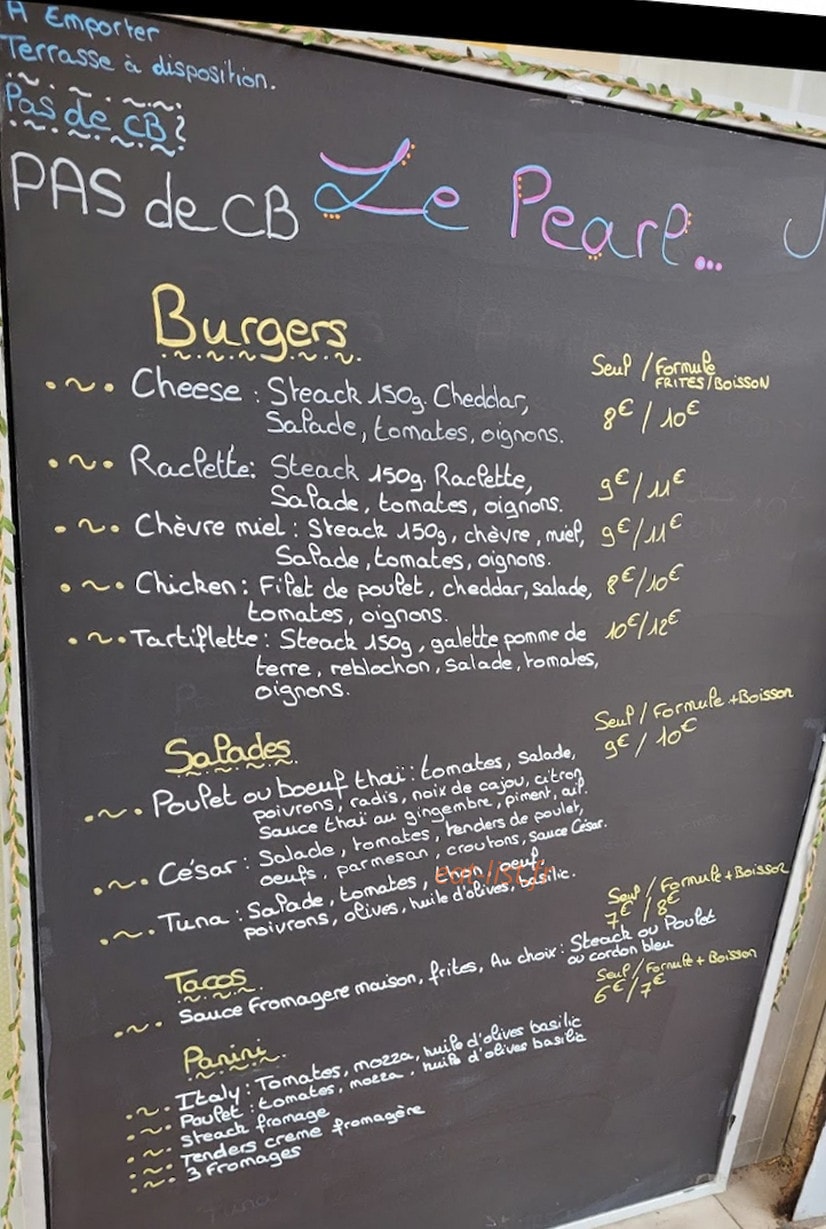 A Emporter
Terrasse à disposition.
Pas de CB ?
PAS de CB
Le Pearl...
Burgers
Seul / Formule
FRITES/BOISSON
Cheese : Steack 150g. Cheddar,
8€ / 10€
Salade, tomates, oignons.
Raclette: Steack 150g. Raclette,
9€ / 11€
Salade, tomates, oignons.
Chèvre miel : Steack 150g, chèvre, miel,
9€/11€
Salade, tomates, oignons.
Chicken : Filet de poulet, cheddar, salade,
8€/10€
tomates, oignons.
Tartiflette : Steack 150g, galette pomme de
10€/12€
terre, reblochon, salade, tomates,
oignons.
Salades
Seul / Formule + Boisson
9€ / 10€
Poulet ou boeuf thaï : tomates, salade,
poivrons, radis, noix de cajou, citron
Sauce thaï au gingembre, piment, ail.
César : Salade, tomates, tenders de poulet,
oeufs, parmesan, croutons, sauce César.
Tuna : Salade, tomates, oeuf,
poivrons, olives, huile d'olives, basilic.
eat-list.fr
Tacos
Seul / Formule + Boisson
7€ / 8€
Sauce Fromagere maison, frites, Au choix : Steack ou Poulet
ou cordon bleu
Panini
Seul / Formule + Boisson
6€/7€
Italy : Tomates, mozza, huile d'olives basilic
Poulet : tomates, mozza, huile d'olives basilic
Steack fromage
Tenders creme fromagère
3 Fromages